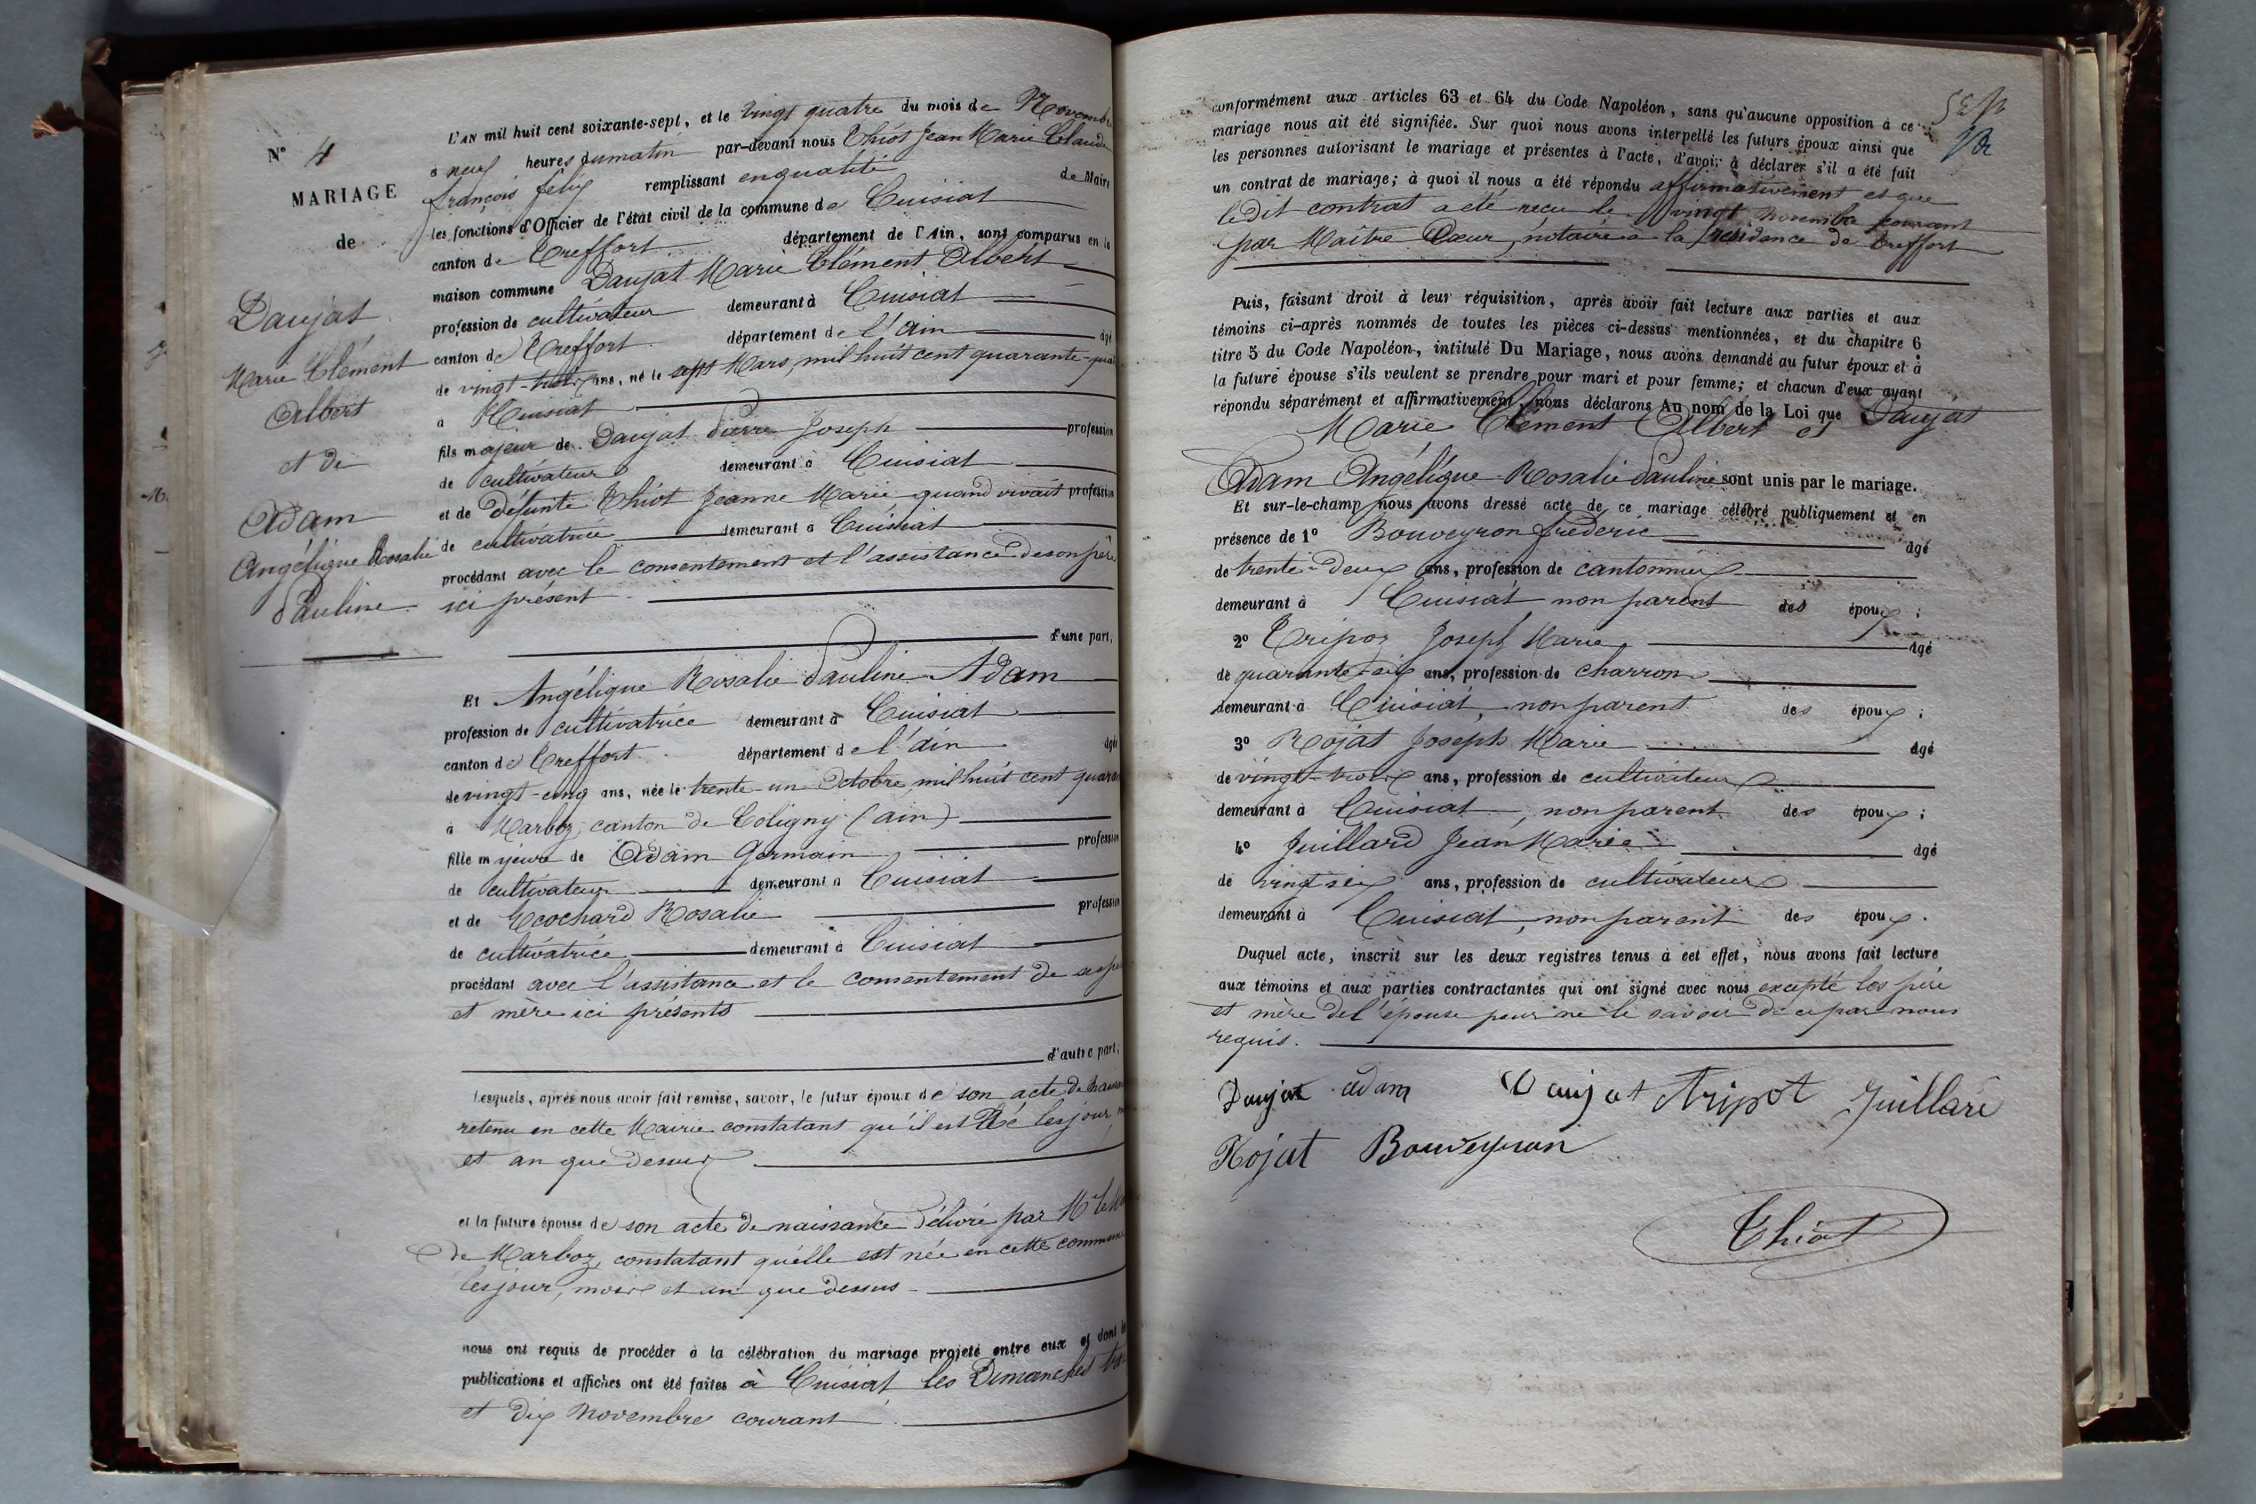 N° 4
MARIAGE
de
Daujat
Marie Clément
Albert
et de
Adam
Angélique Rosalie
Pauline
L'AN mil huit cent soixante-sept, et le vingt quatre du mois de Novembre
à neuf heures du matin par-devant nous Chiot Jean Marie Claude
françois félix remplissant en qualité de Maire
les fonctions d'Officier de l'état civil de la commune de Cuisiat
canton de Treffort département de l'Ain, sont comparus en la
maison commune Daujat Marie Clément Albert
profession de cultivateur demeurant à Cuisiat
canton de Treffort département de l'ain âgé
de vingt-trois ans, né le sept Mars, mil huit cent quarante-quat
à Cuisiat
fils majeur de Daujat Pierre Joseph profession
de cultivateur demeurant à Cuisiat
et de défunte Chiot Jeanne Marie quand vivait profession
de cultivatrice demeurant à Cuisiat
procédant avec le consentement et l'assistance de son père
ici présent
d'une part,
Et Angélique Rosalie Pauline Adam
profession de cultivatrice demeurant à Cuisiat
canton de Treffort département de l'ain âgée
de vingt-cinq ans, née le trente-un Octobre, mil huit cent quaran
à Marboz, canton de Coligny (ain)
fille majeure de Adam Germain profession
de cultivateur demeurant à Cuisiat
et de Ecochard Rosalie profession
de cultivatrice demeurant à Cuisiat
procédant avec l'assistance et le consentement de ses père
et mère ici présents
d'autre part,
Lesquels, après nous avoir fait remise, savoir, le futur époux de son acte de naissan
retenu en cette Mairie constatant qu'il est Né les jour,
et an que dessus
et la future épouse de son acte de naissance délivré par Mr le Maire
de Marboz, constatant qu'elle est née en cette commune
les jour, mois et an que dessus
nous ont requis de procéder à la célébration du mariage projeté entre eux et dont les
publications et affiches ont été faites à Cuisiat les Dimanches trois
et dix novembre courant
conformément aux articles 63 et 64 du Code Napoléon, sans qu'aucune opposition à ce
mariage nous ait été signifiée. Sur quoi nous avons interpellé les futurs époux ainsi que
les personnes autorisant le mariage et présentes à l'acte, d'avoir à déclarer s'il a été fait
un contrat de mariage; à quoi il nous a été répondu affirmativement et que
ledit contrat a été reçu le vingt novembre courant
par Maître Cœur, notaire à la résidence de Treffort
Puis, faisant droit à leur réquisition, après avoir fait lecture aux parties et aux
témoins ci-après nommés de toutes les pièces ci-dessus mentionnées, et du chapitre 6
titre 5 du Code Napoléon, intitulé Du Mariage, nous avons demandé au futur époux et à
la future épouse s'ils veulent se prendre pour mari et pour femme; et chacun d'eux ayant
répondu séparément et affirmativement, nous déclarons Au nom de la Loi que Daujat
Marie Clément Albert et
Adam Angélique Rosalie Pauline sont unis par le mariage.
Et sur-le-champ nous avons dressé acte de ce mariage célébré publiquement et en
présence de 1° Bouveyron frédéric âgé
de trente-deux ans, profession de cantonnier
demeurant à Cuisiat non parent des époux;
2° Tripoz Joseph Marie âgé
de quarante-six ans, profession de charron
demeurant à Cuisiat, non parent des époux;
3° Rojat Joseph Marie âgé
de vingt-trois ans, profession de cultivateur
demeurant à Cuisiat, non parent des époux;
4° Juillard Jean Marie âgé
de vingt six ans, profession de cultivateur
demeurant à Cuisiat, non parent des époux.
Duquel acte, inscrit sur les deux registres tenus à cet effet, nous avons fait lecture
aux témoins et aux parties contractantes qui ont signé avec nous excepté les père
et mère de l'épouse pour ne le savoir de ce par nous
requis.
Daujat adam Daujat Tripot Juillard
Rojat Bouveyron
Chiot